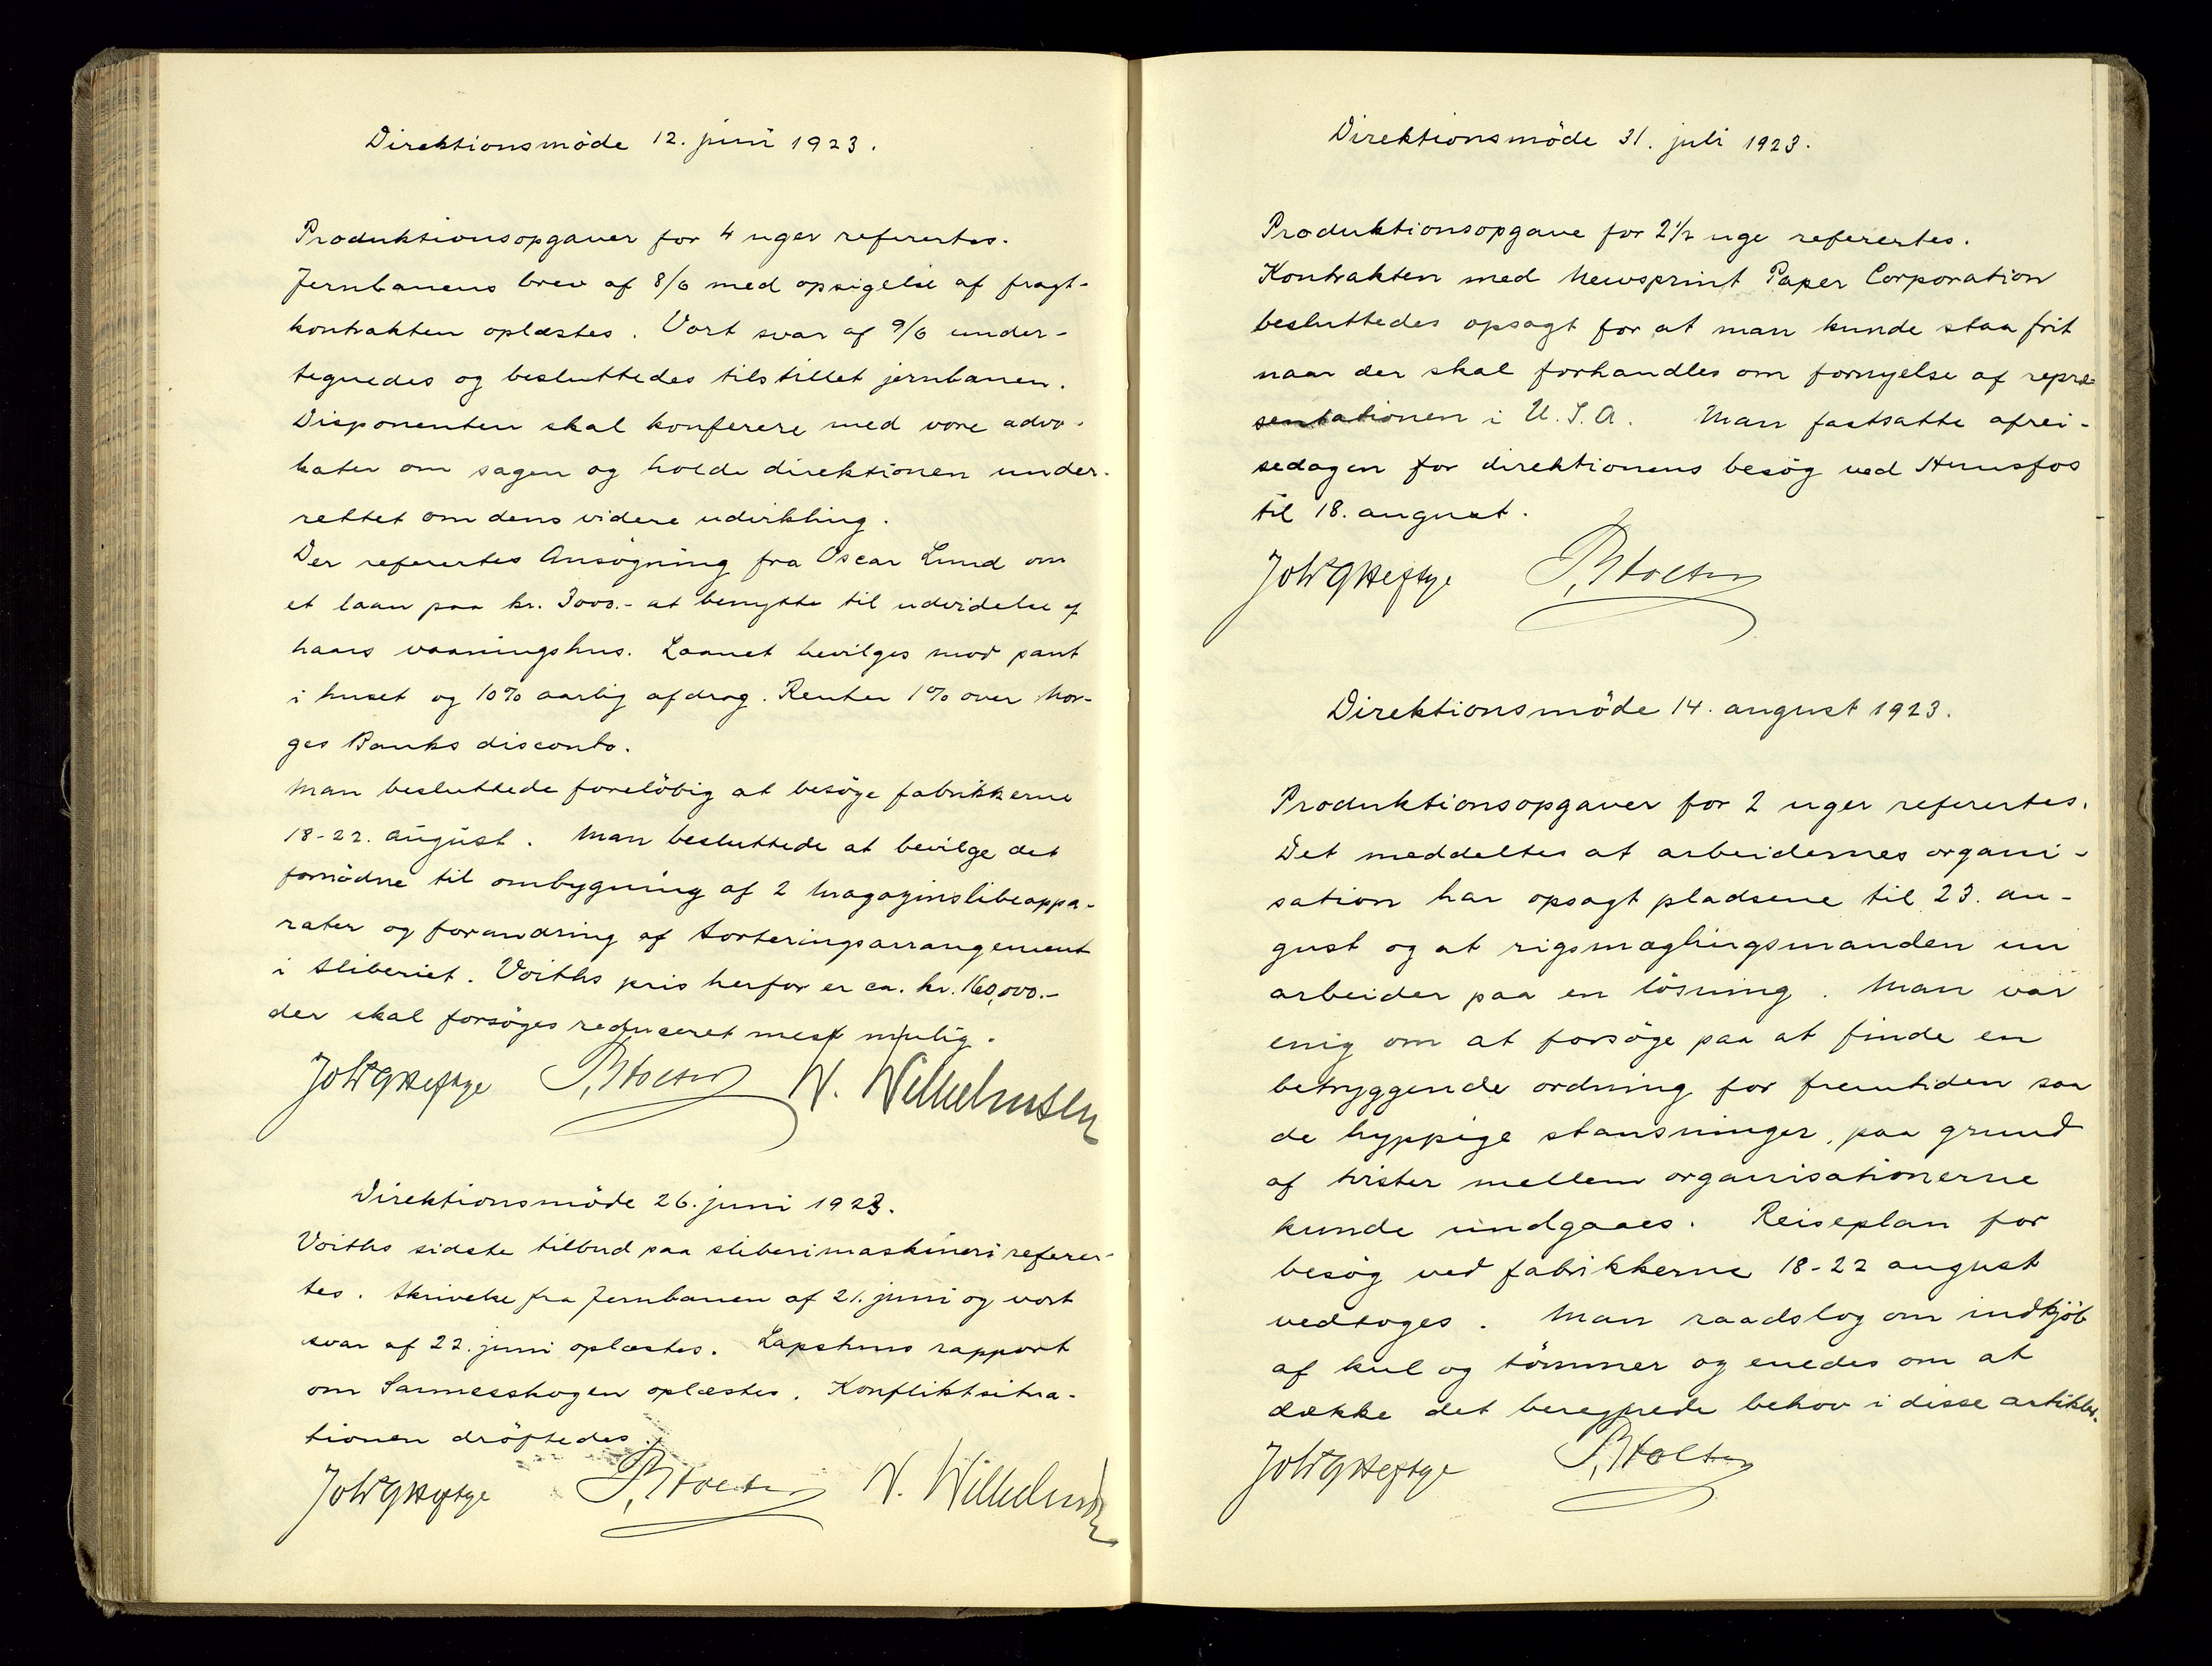 Direktionsmöde 12. juni 1923.
Produktionsopgaver for 4 uger referertes.
Jernbanens brev af 8/6 med opsigelse af fragt-
kontrakten oplæstes. Vort svar af 9/6 under-
tegnedes og besluttedes tilstillet jernbanen.
Disponenten skal konferere med vore advo-
kater om sagen og holde direktionen under-
rettet om dens videre udvikling.
Der referertes Ansøgning fra Oscar Lund om
et laan paa kr. 3000.- at benytte til udvidelse af
hans vaaningshus. Laanet bevilges mod pant
i huset og 10% aarlig afdrag. Renter 1% over Nor-
ges Banks disconto.
Man besluttede foreløbig at besöge fabrikkerne
18-22. august. Man besluttede at bevilge det
fornödne til ombygning af 2 Magazinslibeappa-
rater og forandring af Sorteringsarrangement
i Sliberiet. Voiths pris herfor er ca. kr. 160,000.-
der skal forsöges reduceret mest mulig.
Joh G Heftye P, Holter W. Wilhelmsen
Direktionsmöde 26. juni 1923.
Voiths sidste tilbud paa sliberimaskineri referer-
tes. Skrivelse fra Jernbanen af 21. juni og vort
svar af 22. juni oplæstes. Lapstuns rapport
om Sannesskogen oplæstes. Konfliktsitua-
tionen dröftedes.
Joh G Heftye P, Holter W. Wilhelmsen
Direktionsmöde 31. juli 1923.
Produktionsopgave for 2 1/2 uge referertes.
Kontrakten med Newsprint Paper Corporation
besluttedes opsagt for at man kunde staa frit
naar der skal forhandles om fornyelse af repræ-
sentationen i U.S.A. Man fastsatte afrei-
sedagen for direktionens besög ved Hunsfos
til 18. august.
Joh G Heftye P, Holter
Direktionsmöde 14. august 1923.
Produktionsopgaver for 2 uger referertes.
Det meddeltes at arbeidernes organi-
sation har opsagt pladsene til 23. au-
gust og at rigsmæglingsmanden nu
arbeider paa en lösning. Man var
enig om at forsöge paa at finde en
betryggende ordning for fremtiden saa
de hyppige stansninger, paa grund
af tvister mellem organisationerne
kunde undgaaes. Reiseplan for
besög ved fabrikkerne 18-22 august
vedtoges. Man raadslog om indkjöb
af kul og tömmer og enedes om at
dække det beregnede behov i disse artikler.
Joh G Heftye P, Holter